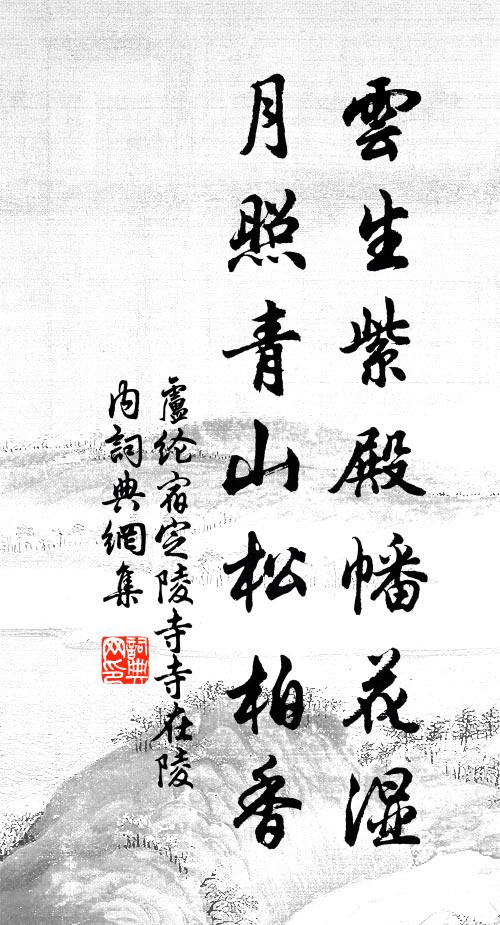 雲生紫殿幡花湿
月照青山松柏香
盧纶宿定陵寺寺在陵
内詞典網集
詞典网印